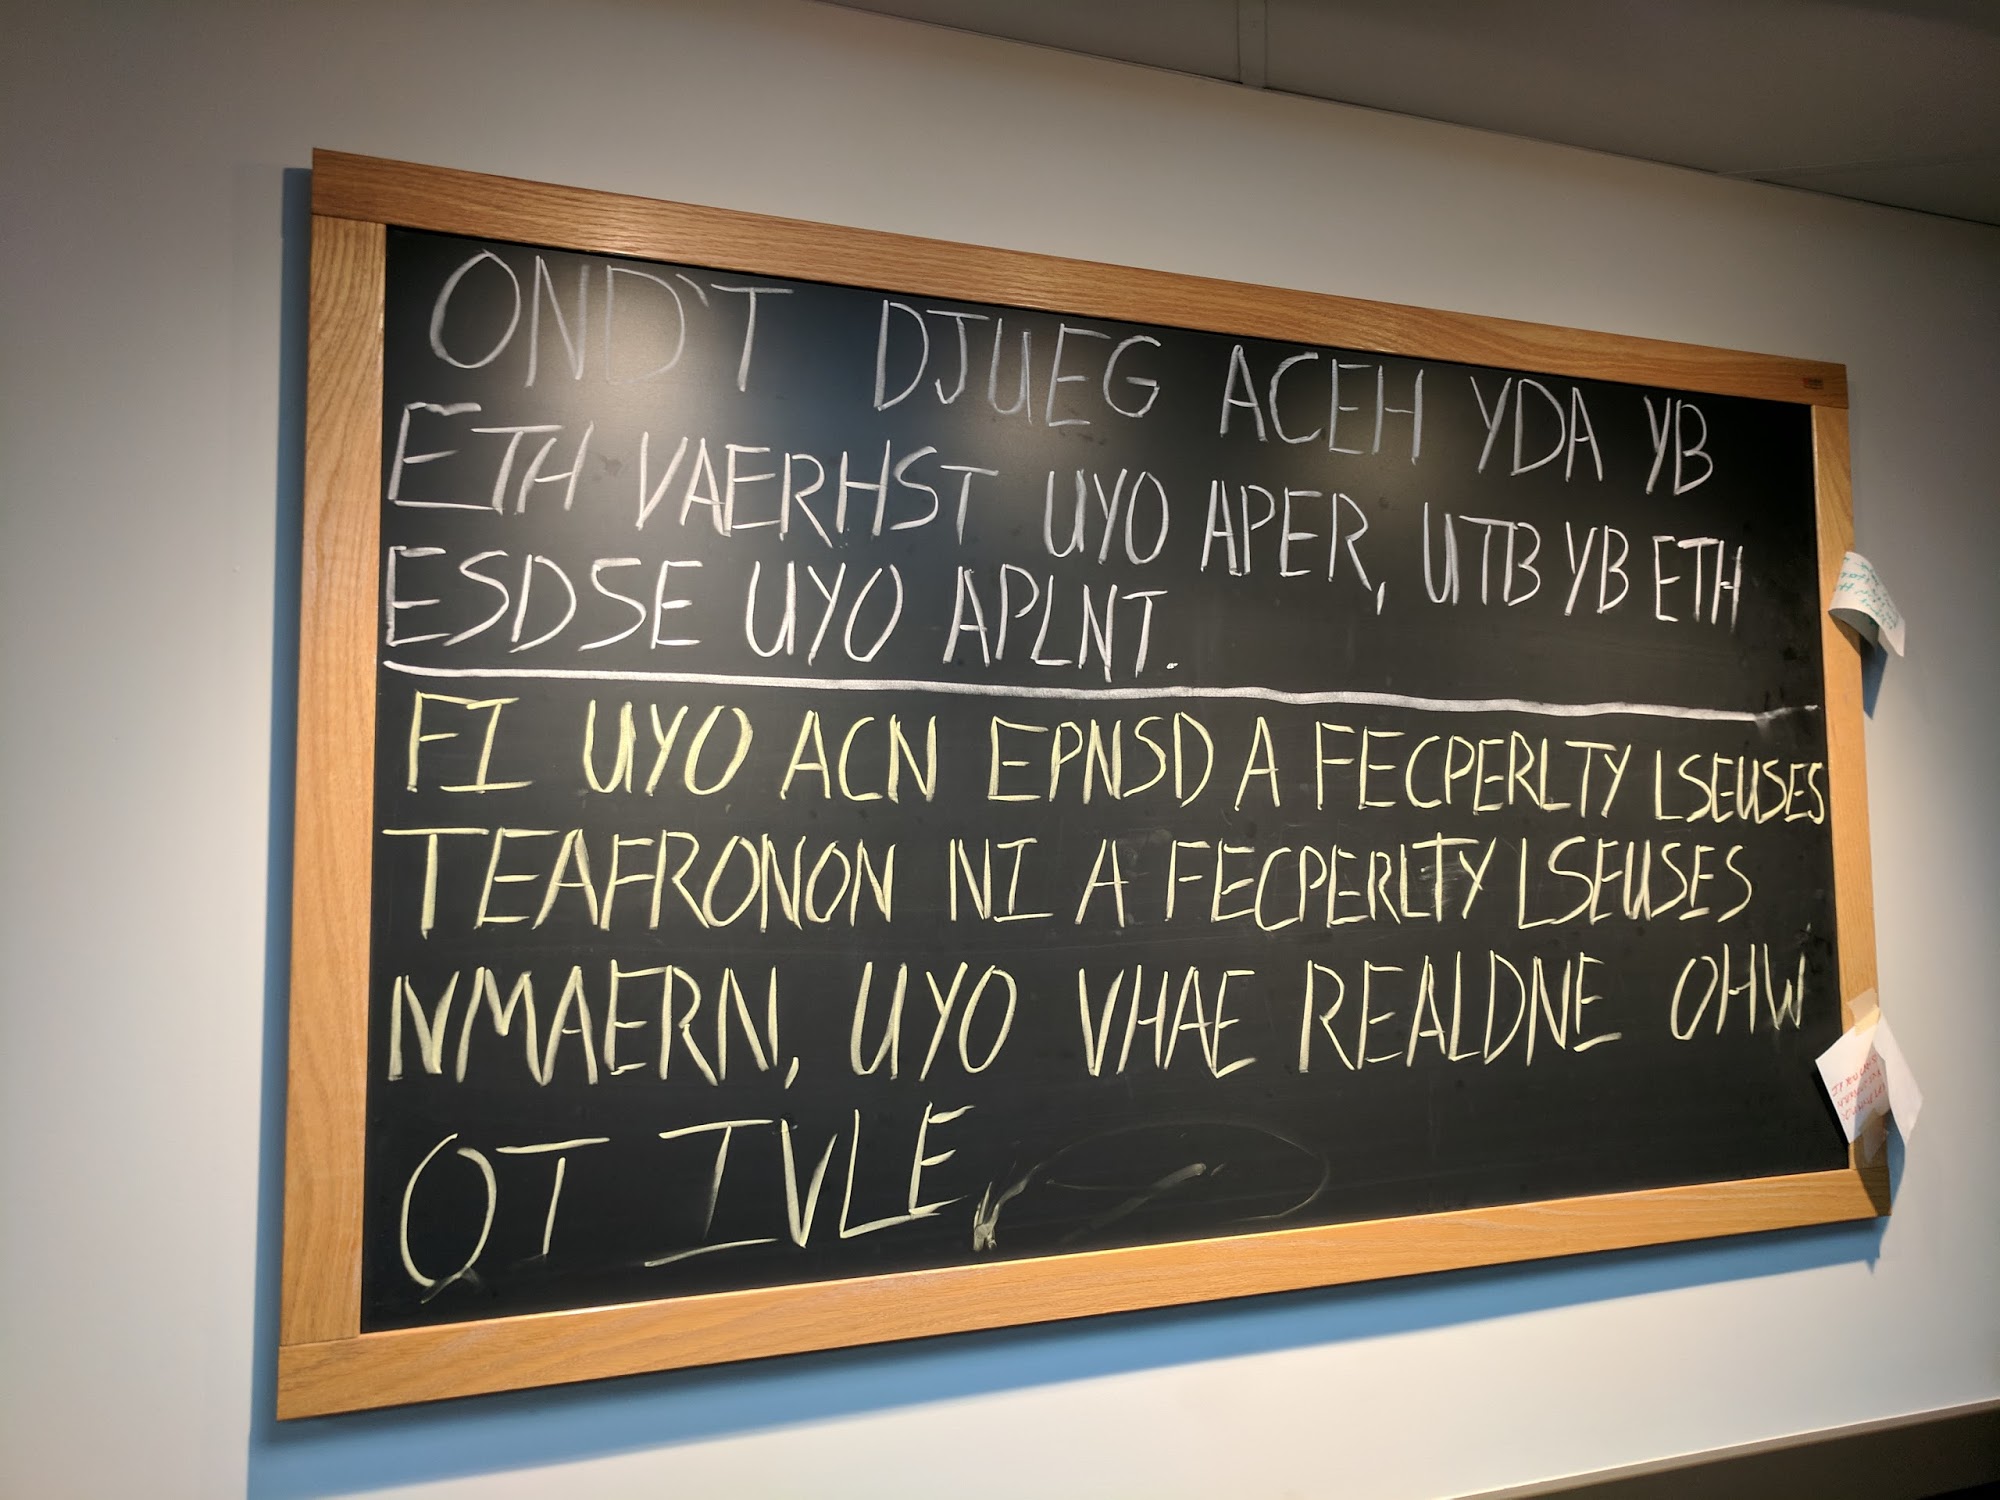 OND'T DJUEG ACEH YDA YB
ETH VAERHST UYO APER, UTB YB ETH
ESDSE UYO APLNT.
FI UYO ACN EPNSD A FECPERLTY LSEUSES
TEAFRONON NI A FECPERLTY LSEUSES
NMAERN, UYO VHAE REALDNE OHW
OT IVLE.